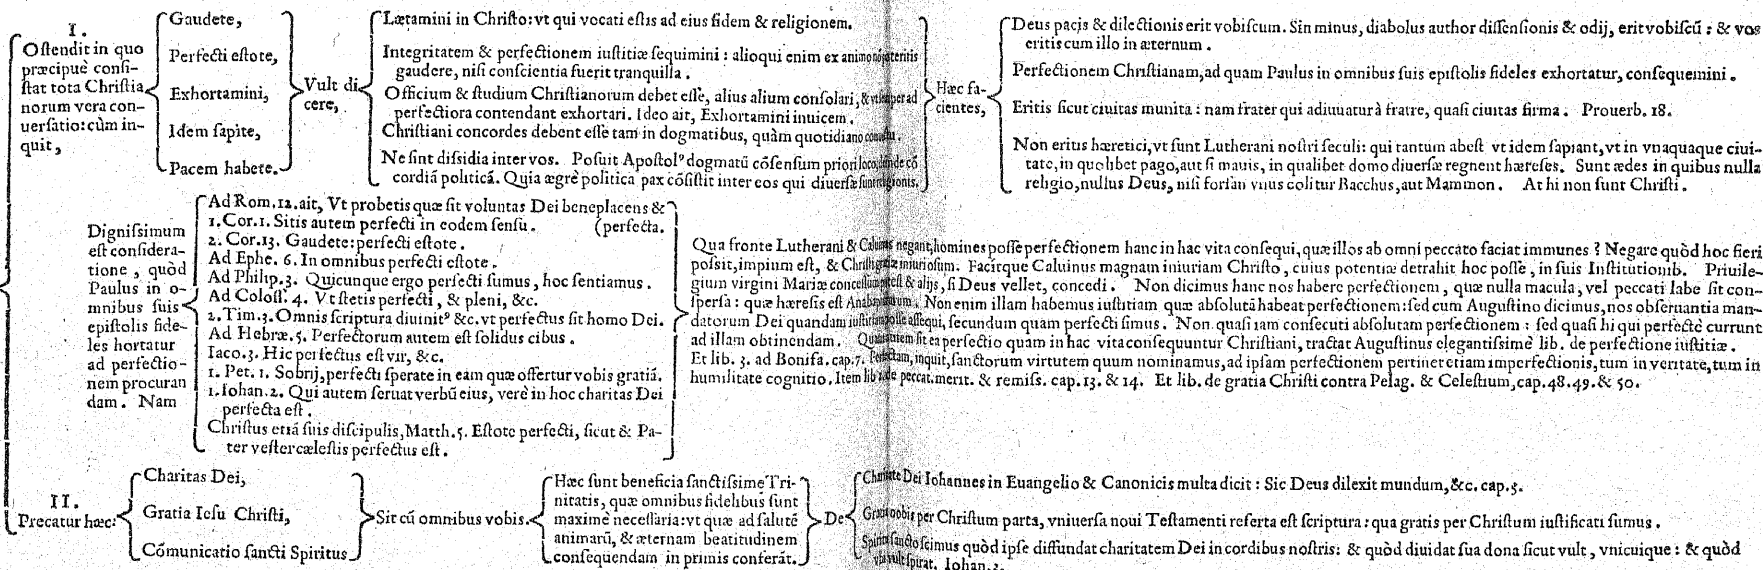 I.
Ostendit in quo
præcipuè consi-
stat tota Christia
norum vera con-
uersatio: cùm in-
quit,
Gaudete,
Perfecti estote,
Exhortamini,
Idem sapite,
Pacem habete.
Vult di
cere,
Lætamini in Christo: vt qui vocati estis ad eius fidem & religionem.
Integritatem & perfectionem iustitiæ sequimini: alioqui enim ex animo
gaudere, nisi conscientia fuerit tranquilla.
Officium & studium Christianorum debet esse, alius alium consolari, &
perfectiora contendant exhortari. Ideo ait, Exhortamini inuicem.
Christiani concordes debent esse tam in dogmatibus, quàm quotidiano
Ne sint dissidia inter vos. Posuit Apostolꝰ dogmatũ cõsensum priori loco,
cordiã politicã. Quia ægrè politica pax cõsistit inter eos qui diuersæ
Hæc fa-
cientes,
Deus pacis & dilectionis erit vobiscum. Sin minus, diabolus author dissensionis & odij, erit vobiscũ: & vos
eritis cum illo in æternum.
Perfectionem Christianam, ad quam Paulus in omnibus suis epistolis fideles exhortatur, consequemini.
Eritis sicut ciuitas munita: nam frater qui adiuuatur à fratre, quasi ciuitas firma. Prouerb. 18.
Non eritus hæretici, vt sunt Lutherani nostri seculi: qui tantum abest vt idem sapiant, vt in vnaquaque ciui-
tate, in quolibet pago, aut si mauis, in qualibet domo diuersæ regnent hæreses. Sunt ædes in quibus nulla
religio, nullus Deus, nisi forsan vnus colitur Bacchus, aut Mammon. At hi non sunt Christi.
Dignissimum
est considera-
tione, quòd
Paulus in o-
mnibus suis
epistolis fide-
les hortatur
ad perfectio-
nem procuran
dam. Nam
Ad Rom. 12. ait, Vt probetis quæ sit voluntas Dei beneplacens &
(perfecta.
1. Cor. 1. Sitis autem perfecti in eodem sensu.
2. Cor. 13. Gaudete: perfecti estote.
Ad Ephe. 6. In omnibus perfecti estote.
Ad Philip. 3. Quicunque ergo perfecti sumus, hoc sentiamus.
Ad Coloss. 4. Vt stetis perfecti, & pleni, &c.
2. Tim. 3. Omnis scriptura diuinitꝰ &c. vt perfectus sit homo Dei.
Ad Hebræ. 5. Perfectorum autem est solidus cibus.
Iaco. 3. Hic perfectus est vir, &c.
1. Pet. 1. Sobrij, perfecti sperate in eam quæ offertur vobis gratiã.
1. Iohan. 2. Qui autem seruat verbũ eius, verè in hoc charitas Dei
perfecta est.
Christus etiã suis discipulis, Matth. 5. Estote perfecti, sicut & Pa-
ter vester cælestis perfectus est.
Qua fronte Lutherani & negant, homines posse perfectionem hanc in hac vita consequi, quæ illos ab omni peccato faciat immunes? Negare quòd hoc fieri
possit, impium est, & iniuriosum. Facitque Caluinus magnam iniuriam Christo, cuius potentiæ detrahit hoc posse, in suis Institutionib. Priuile-
gium virgini Mariæ & alijs, si Deus vellet, concedi. Non dicimus hanc nos habere perfectionem, quæ nulla macula, vel peccati labe sit con-
spersa: quæ hæresis est Non enim illam habemus iustitiam quæ absolutã habeat perfectionem: sed cum Augustino dicimus, nos obseruantia man-
datorum Dei quandam assequi, secundum quam perfecti simus. Non quasi iam consecuti absolutam perfectionem: sed quasi hi qui perfectè currunt
ad illam obtinendam. sit ea perfectio quam in hac vita consequuntur Christiani, tractat Augustinus elegantissimè lib. de perfectione iustitiæ.
Et lib. 3. ad Bonifa. cap. 7. inquit, sanctorum virtutem quum nominamus, ad ipsam perfectionem pertinet etiam imperfectionis, tum in veritate, tum in
humilitate cognitio. Item lib de peccat. merit. & remiss. cap. 13. & 14. Et lib. de gratia Christi contra Pelag. & Celestium, cap. 48. 49. & 50.
II.
Precatur hæc:
Charitas Dei,
Gratia Iesu Christi,
Cõmunicatio sancti Spiritus
Sit cũ omnibus vobis.
Hæc sunt beneficia sanctissime Tri-
nitatis, quæ omnibus fidelibus sunt
maximè necessaria: vt quæ ad salutẽ
animarũ, & æternam beatitudinem
consequendam in primis conferãt.
De
Charitate Dei Iohannes in Euangelio & Canonicis multa dicit: Sic Deus dilexit mundum, &c. cap. 3.
Gratia nobis per Christum parta, vniuersa noui Testamenti referta est scriptura: qua gratis per Christum iustificati sumus.
Spiritu sancto scimus quòd ipse diffundat charitatem Dei in cordibus nostris: & quòd diuidat sua dona sicut vult, vnicuique: & quòd
vbi vult spirat. Iohan. 3.